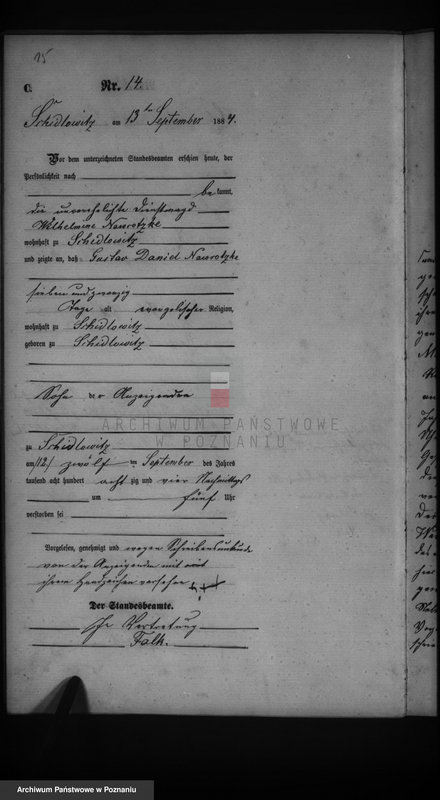 15
C.
Nr. 14.
Schidlowitz am 13ten September 1884.
Vor dem unterzeichneten Standesbeamten erschien heute, der
Persönlichkeit nach
bekannt,
die unverehelichte Dienstmagd
Wilhelmine Nawrotzke
wohnhaft zu Schidlowitz
und zeigte an, daß Gustav Daniel Nawrotzke
sieben und zwanzig
Tage alt evangelischer Religion,
wohnhaft zu Schidlowitz
geboren zu Schidlowitz
Sohn der Anzeigenden
ARCHIWUM PAŃSTWOWE
W POZNANIU
zu Schidlowitz
am (12) zwölf ten September des Jahres
tausend acht hundert achtzig und vier Nachmittags
um fünf Uhr
verstorben sei
Vorgelesen, genehmigt und wegen Schreibensunkunde
von der Anzeigenden mit
ihrem Handzeichen versehen +++
Der Standesbeamte.
In Vertretung
Falk.
Archiwum Państwowe w Poznaniu